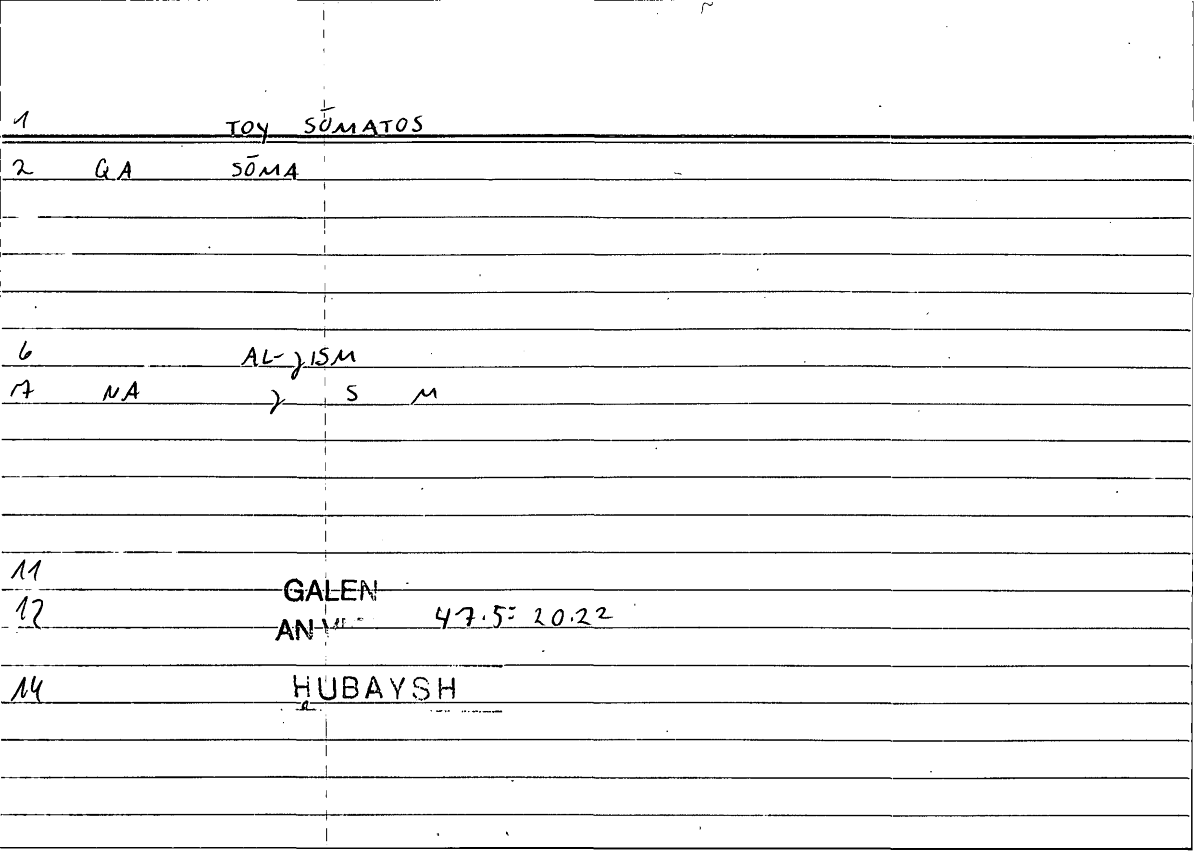 1 TOY SŌMATOS
2 QA SŌMA
6 AL-ʒISM
7 NA ʒ S M
11 GALEN
12 AN 47.5 = 20.22
14 ḤUBAYSH